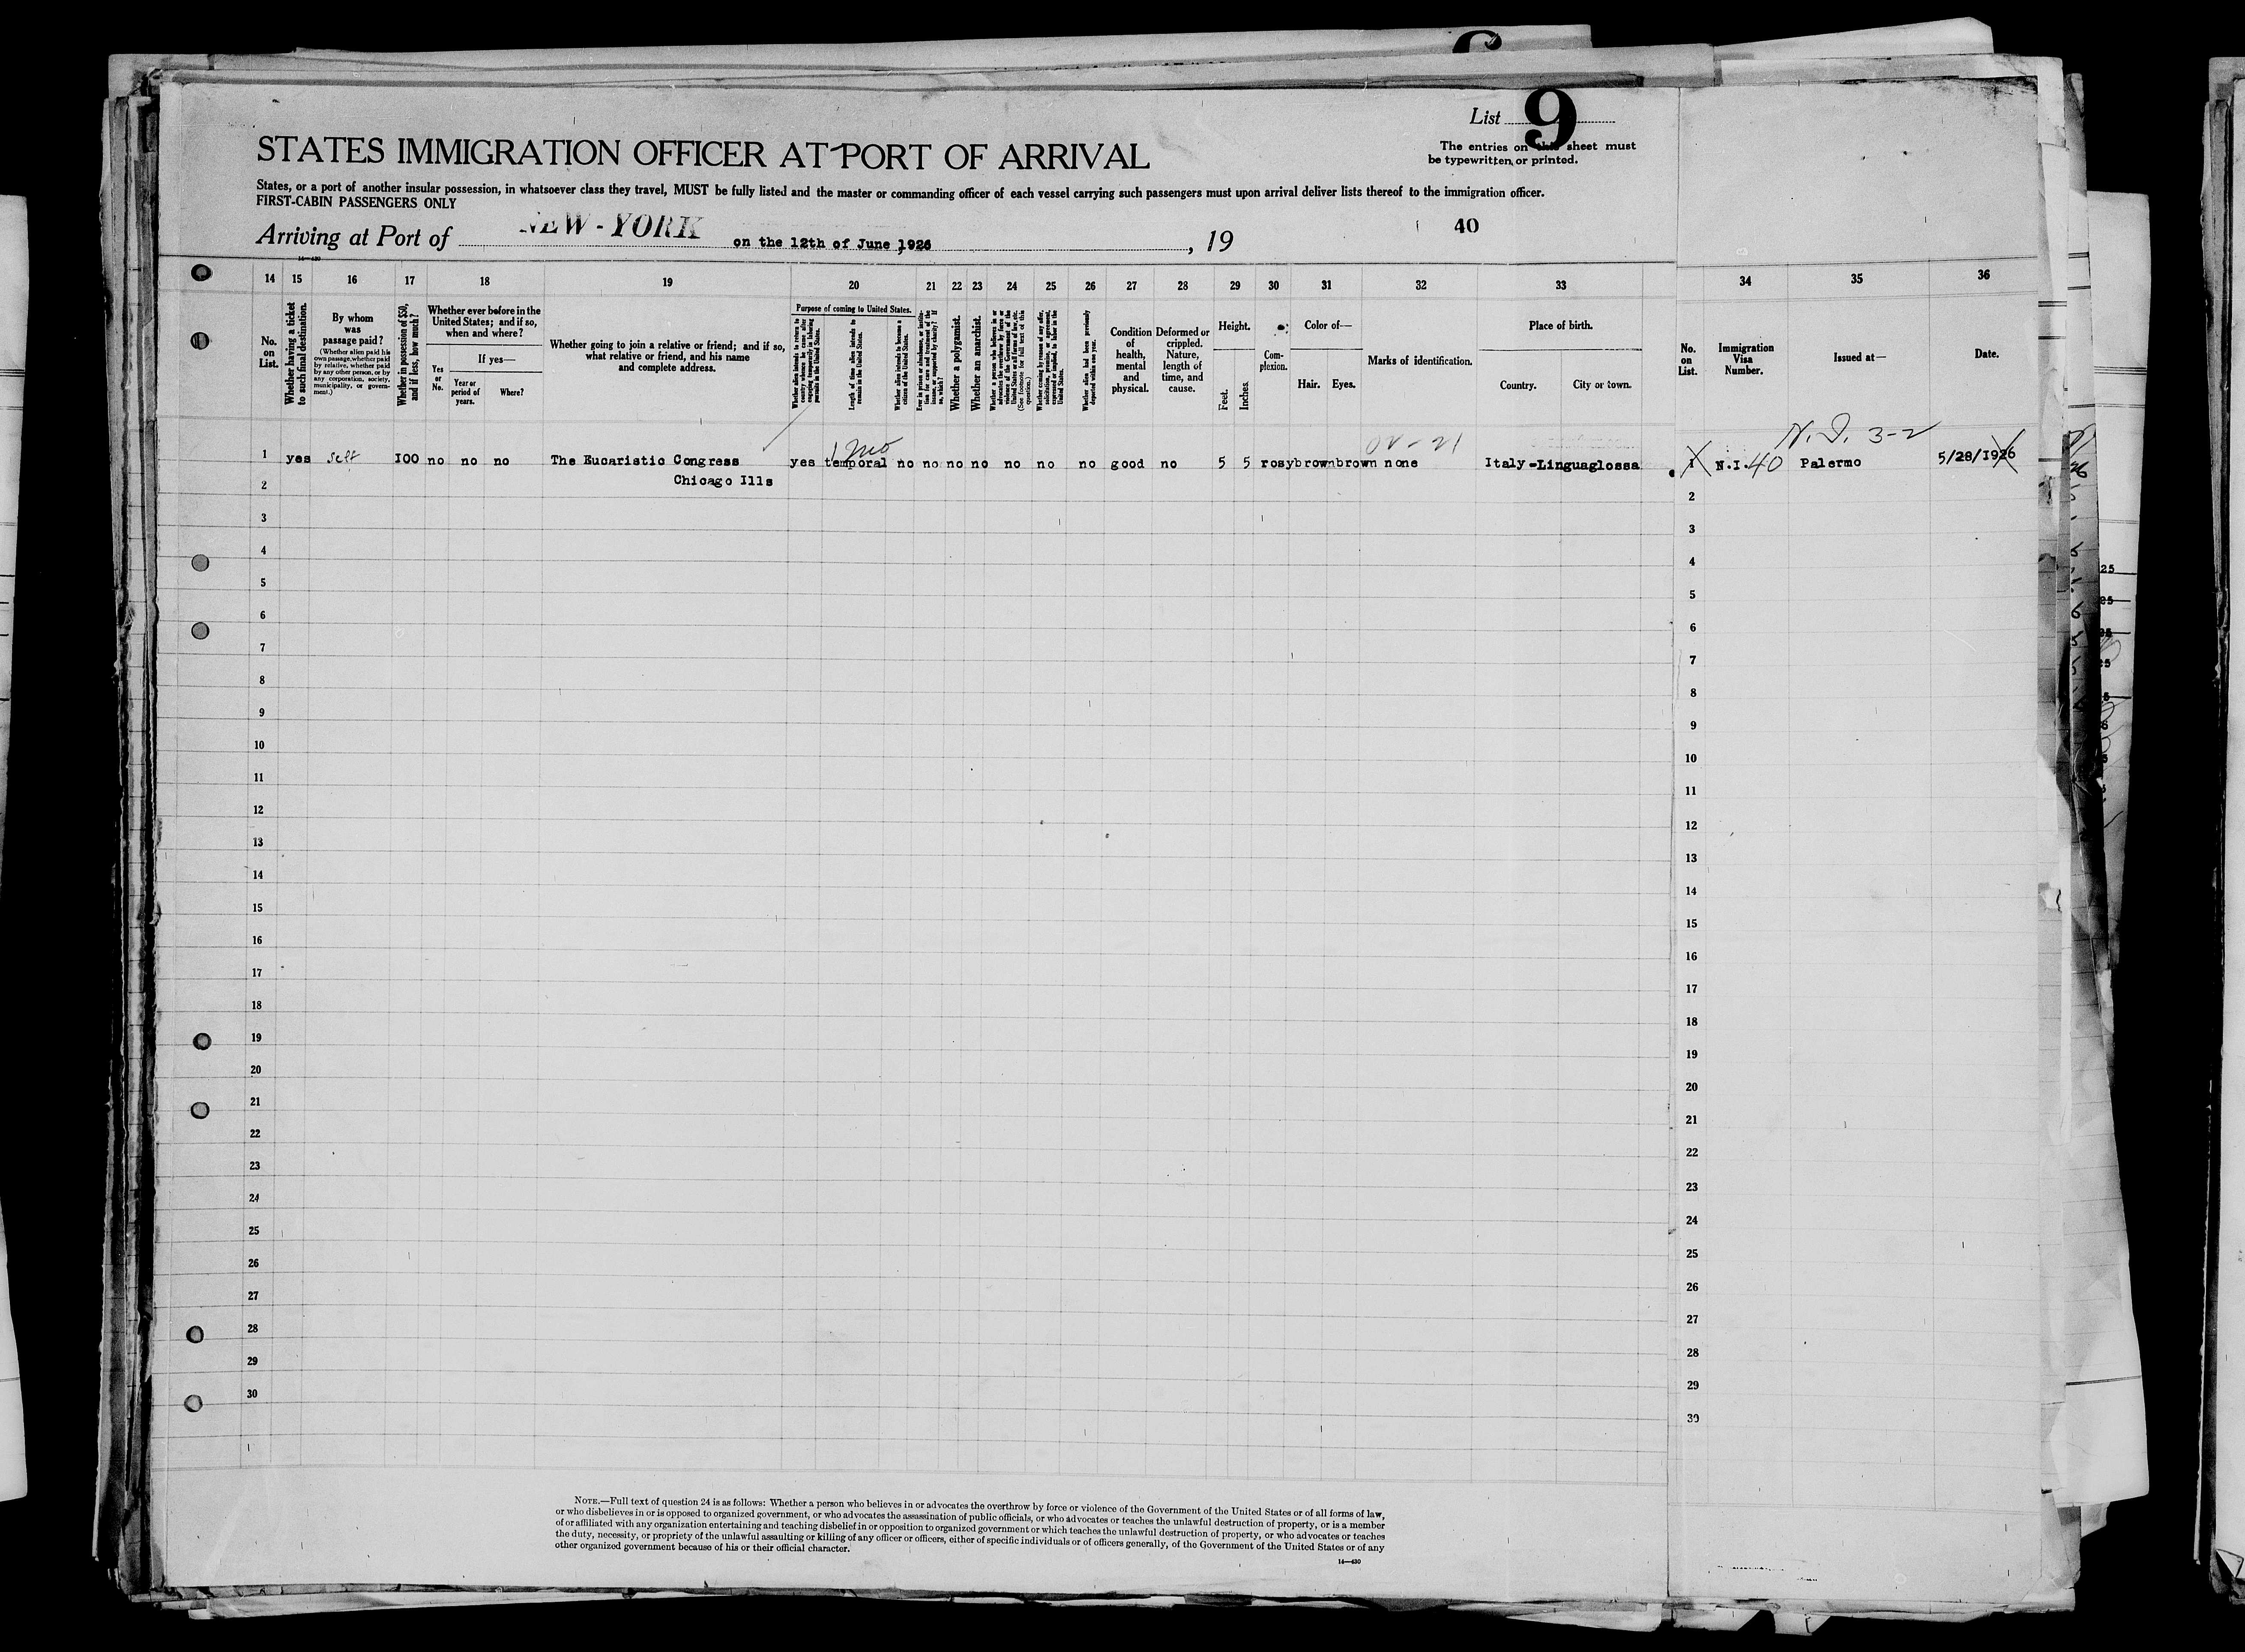 List 9
The entries on this sheet must
be typewritten or printed.
STATES IMMIGRATION OFFICER AT PORT OF ARRIVAL
States, or a port of another insular possession, in whatsoever class they travel, MUST be fully listed and the master or commanding officer of each vessel carrying such passengers must upon arrival deliver lists thereof to the immigration officer.
FIRST-CABIN PASSENGERS ONLY
Arriving at Port of NEW-YORK on the 12th of June, 1926, 19
40
14—430
14 15 16 17 18 19 20 21 22 23 24 25 26 27 28 29 30 31 32 33 34 35 36
No. on List.
Whether having a ticket to such final destination.
By whom was passage paid?
(Whether alien paid his own passage, whether paid by relative, whether paid by any other person, or by any corporation, society, municipality, or government.)
Whether in possession of $50, and if less, how much?
Whether ever before in the United States; and if so, when and where?
Yes or No.
If yes—
Year or period of years.
Where?
Whether going to join a relative or friend; and if so, what relative or friend, and his name and complete address.
Purpose of coming to United States.
Whether alien intends to return to country whence he came after engaging temporarily in laboring pursuits in the United States.
Length of time alien intends to remain in the United States.
Whether alien intends to become a citizen of the United States.
Ever in prison or almshouse, or institution for care and treatment of the insane, or supported by charity? If so, which?
Whether a polygamist.
Whether an anarchist.
Whether a person who believes in or advocates the overthrow by force or violence of the Government of the United States or all forms of law, etc. (See footnote for full text of this question.)
Whether coming by reason of any offer, solicitation, promise, or agreement, expressed or implied, to labor in the United States.
Whether alien had been previously deported within one year.
Condition of health, mental and physical.
Deformed or crippled. Nature, length of time, and cause.
Height.
Feet.
Inches.
Complexion.
Color of—
Hair.
Eyes.
Marks of identification.
Place of birth.
Country.
City or town.
No. on List.
Immigration Visa Number.
Issued at—
Date.
1 mo
N.I. 3-2
1 yes self 100 no no no The Eucaristic Congress yes temporal no no no no no no no good no 5 5 rosy brown brown none Italy-Linguaglossa 1 N.I. 40 Palermo 5/28/1926
2 Chicago Ills 2
3 3
4 4
5 5
6 6
7 7
8 8
9 9
10 10
11 11
12 12
13 13
14 14
15 15
16 16
17 17
18 18
19 19
20 20
21 21
22 22
23 23
24 24
25 25
26 26
27 27
28 28
29 29
30 30
NOTE.—Full text of question 24 is as follows: Whether a person who believes in or advocates the overthrow by force or violence of the Government of the United States or of all forms of law,
or who disbelieves in or is opposed to organized government, or who advocates the assassination of public officials, or who advocates or teaches the unlawful destruction of property, or is a member
of or affiliated with any organization entertaining and teaching disbelief in or opposition to organized government or which teaches the unlawful destruction of property, or who advocates or teaches
the duty, necessity, or propriety of the unlawful assaulting or killing of any officer or officers, either of specific individuals or of officers generally, of the Government of the United States or of any
other organized government because of his or their official character.
14—430